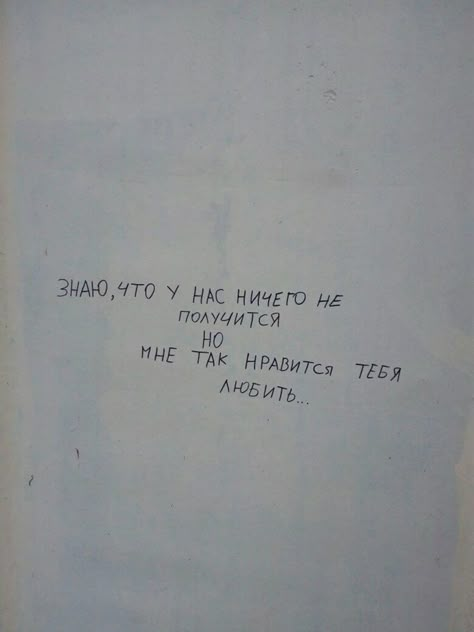 ЗНАЮ, ЧТО У НАС НИЧЕГО НЕ
ПОЛУЧИТСЯ
НО
МНЕ ТАК НРАВИТСЯ ТЕБЯ
ЛЮБИТЬ...